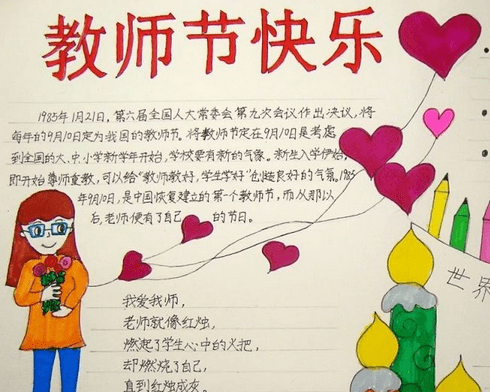 教师节快乐
1985年1月21日,第六届全国人大常委会第九次会议作出决议,将
每年的9月10日定为我国的教师节。将教师节定在9月10日是考虑
到全国的大、中小学新学年开始,学校要有新的气象。新生入学伊始,
即开始尊师重教,可以给“教师教好,学生学好”创造良好的气氛。1985
年9月10日,是中国恢复建立的第一个教师节,而从那以
后,老师便有了自己的节日。
世界
我爱我师,
老师就像红烛,
燃起了学生心中的火把,
却燃烧了自己,
直到红烛成灰。